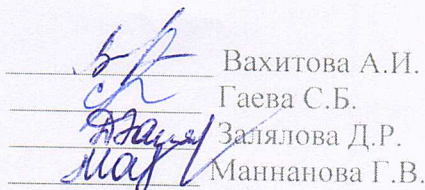 Вахитова А.И.
Гаева С.Б.
Залялова Д.Р.
Маннанова Г.В.